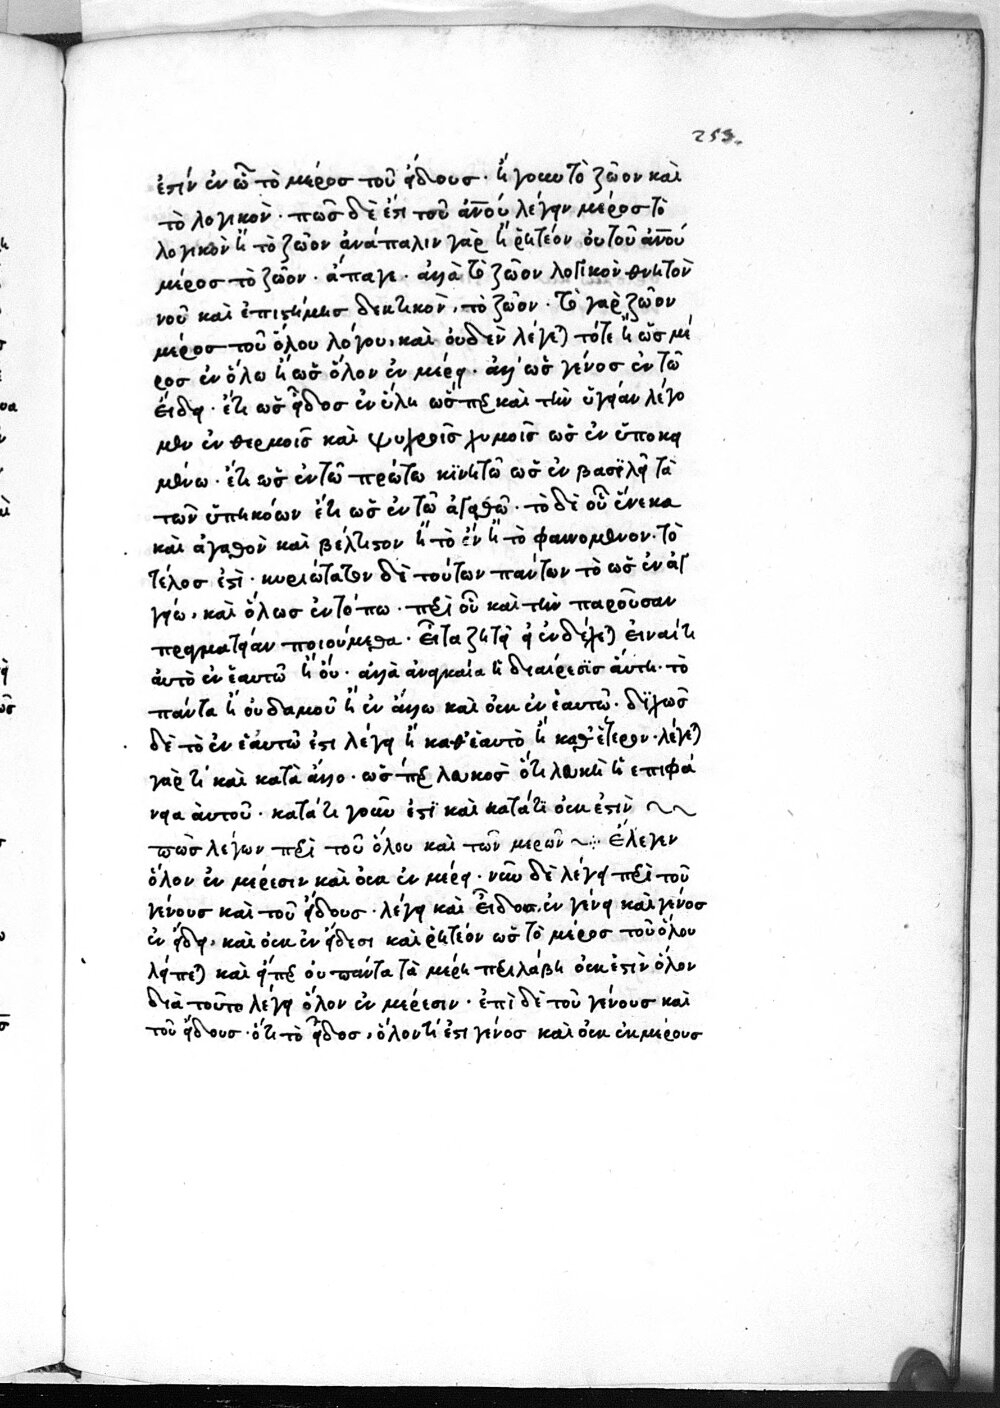 253.
ἐστίν ἐν ᾧ τὸ μέροσ τοῦ εἴδουσ · ἢ γοῦν τὸ ζῶον καὶ
τὸ λογικὸν · πῶσ δὲ ἐστι τοῦ ἀνου λέγειν μέροσ τὸ
λογικὸν ἢ τὸ ζῶον ἀνάπαλιν γὰρ ἢ ῥητέον οὐ τοῦ ἀνου
μέροσ τὸ ζῶον · ἄπαγε · ἀλλὰ τὸ ζῶον λογικὸν θνητὸν
νοῦ καὶ ἐπιστήμησ δεκτικὸν, τὸ ζῶον · τὸ γαρ ζῶον
μέροσ τοῦ ὅλου λόγου, καὶ οὐδὲν λέγε) τότε ἢ ὡσ μέ
ροσ ἐν ὅλω ἢ ὡσ ὅλον ἐν μέρει · ἀλλ' ὡσ γένοσ ἐν τῶ
εἴδει · ἔτι ὡσ εἶδοσ ἐν ὕλη ὥσπερ καὶ τὴν ὑγείαν λέγο
μεν ἐν θερμοῖσ καὶ ψυχροῖσ χυμοῖσ ὡσ ἐν ὑποκει
μένω · ἔτι ὡσ ἐν τῶ πρώτω κϊνητῶ ὡσ ἐν βασϊλεῖ τὰ
τῶν ὑπηκόων ἔτι ὡσ ἐν τῶ ἀγαθῶ · τὸ δὲ οὗ ἕνεκα
καὶ ἀγαθὸν καὶ βέλτιστον ἢ τὸ ἐν ἢ τὸ φαινομενον · τὸ
τέλοσ ἐστὶ · κυριώτατον δὲ τούτων πάντων τὸ ὡσ ἐν ἀγ
γείω, καὶ ὅλωσ ἐν τόπω · περὶ οὗ καὶ τὴν παροῦσαν
πραγματείαν ποιούμεθα · εἶτα ζητεῖ εἰ ἐνδέχε) εἶναί τι
αὐτὸ ἐν ἑαυτῶ ἢ οὐ · ἀλλὰ ἀναγκαία ἡ διαίρεσϊσ αὕτη · τὸ
πάντα ἢ οὐδαμοῦ ἢ ἐν ἄλλω καὶ οὐκ ἐν ἑαυτῶ · δϊχῶσ
δὲ τὸ ἐν ἑαυτῶ ἐστι λέγει ἢ καθ' ἑαυτὸ ἢ καθ' ἕτερον · λέγε)
γὰρ τί καὶ κατὰ ἄλλο · ὡσπερ λευκὸσ ὅτι λευκὴ ἡ επιφά
νεια αὐτοῦ · κατά τι γοῦν ἐστϊ καὶ κατά τϊ οὐκ ἐστὶν
πῶσ λέγων περὶ τοῦ ὅλου καὶ τῶν μερῶν ~ ·:· ἔλεγεν
ὅλον ἐν μέρεσιν καὶ οὐκ ἐν μέρει · νῦν δὲ λέγει περὶ τοῦ
γένουσ καὶ τοῦ εἴδουσ · λέγει καὶ εἶδοσ, ἐν γένει καὶ γένοσ
ἐν εἴδει, καὶ οὐκ ἐν εἴδεσι καὶ ῥητέον ὡσ τὸ μέροσ τοῦ ὅλου
λείπε) καὶ εἴπερ οὐ πάντα τὰ μέρη περιλάβη οὐκ ἐστὶν ὅλον
διὰ τοῦτο λέγει ὅλον ἐν μέρεσιν · ἐπὶ δὲ τοῦ γένουσ καὶ
τοῦ εἴδουσ · ὅτι τὸ εἶδοσ, ὅλον τί ἐστι γένοσ καὶ οὐκ ἐκ μέρουσ